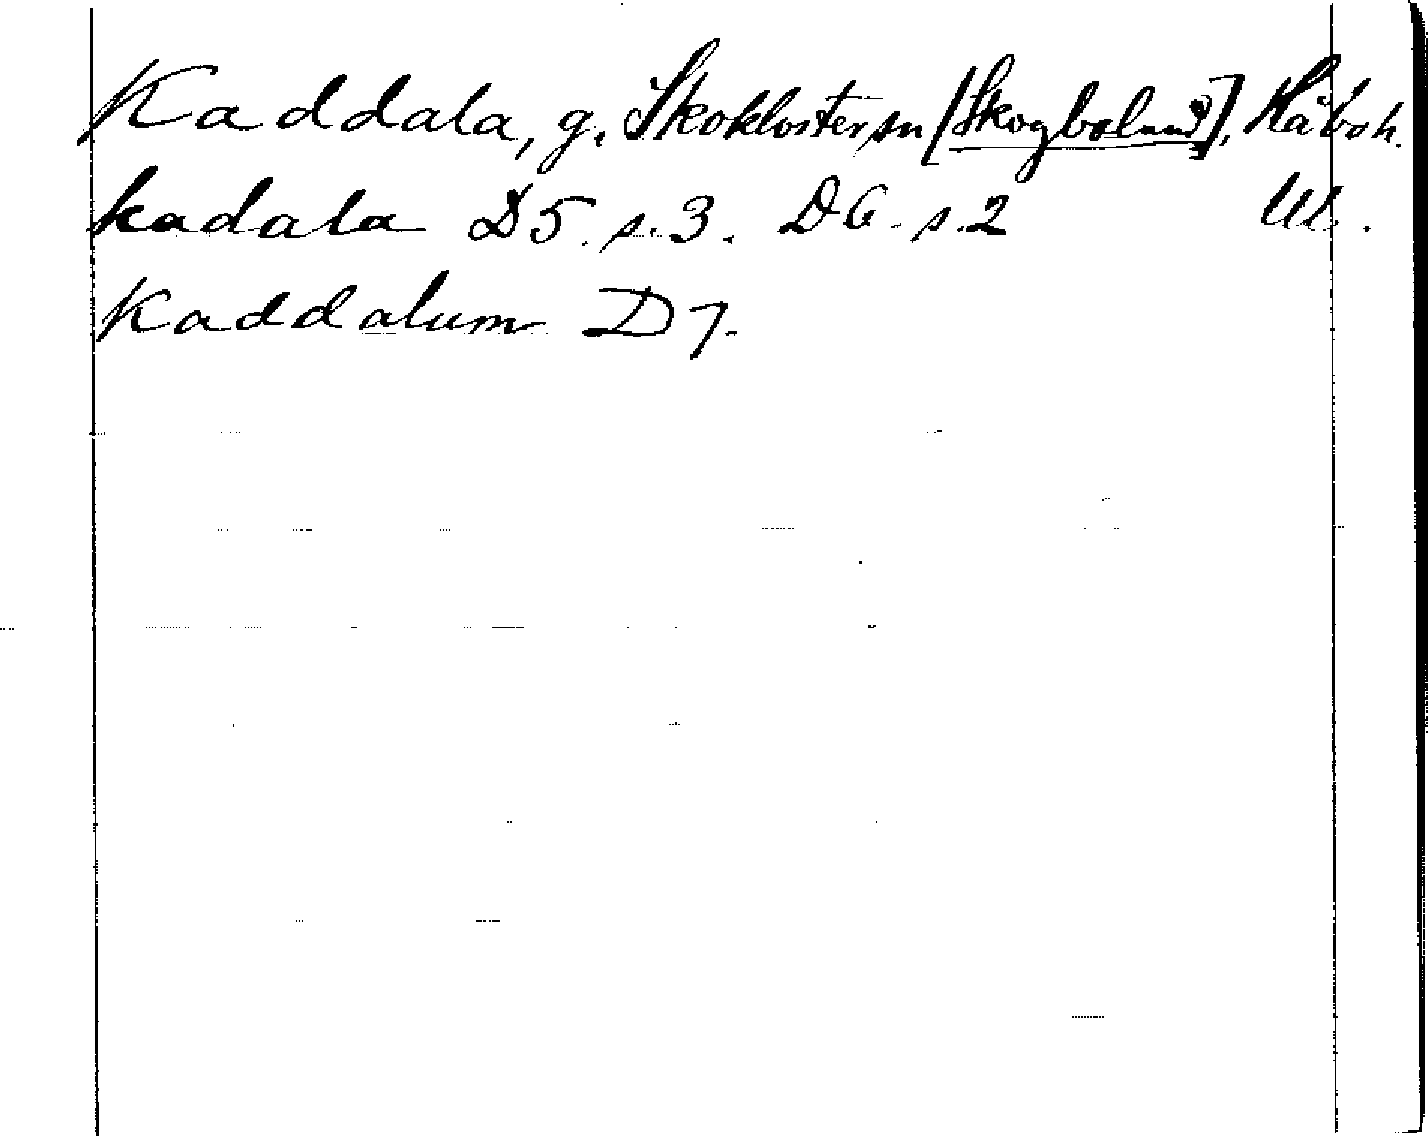 Kaddala, g. Skokloster sn [Skogbolund], Håbo h.
kadala D5. s. 3. D6. s. 2 Ul.
Kaddalum D7.